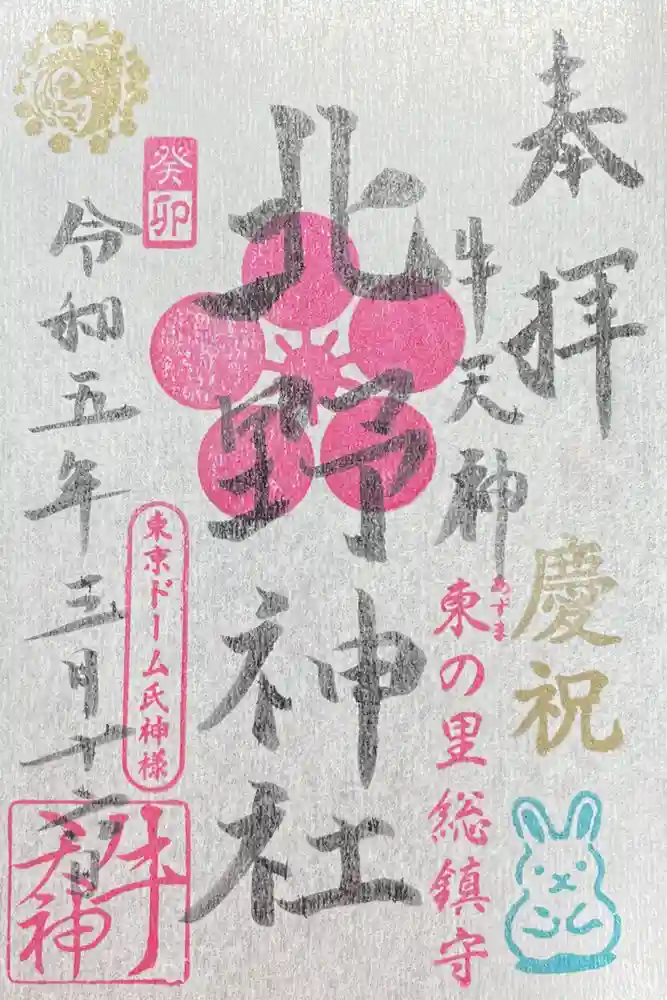 奉拝
慶祝
牛天神
あずま
東の里総鎮守
北野神社
癸卯
東京ドーム氏神様
令和五年三月十二日
牛天神